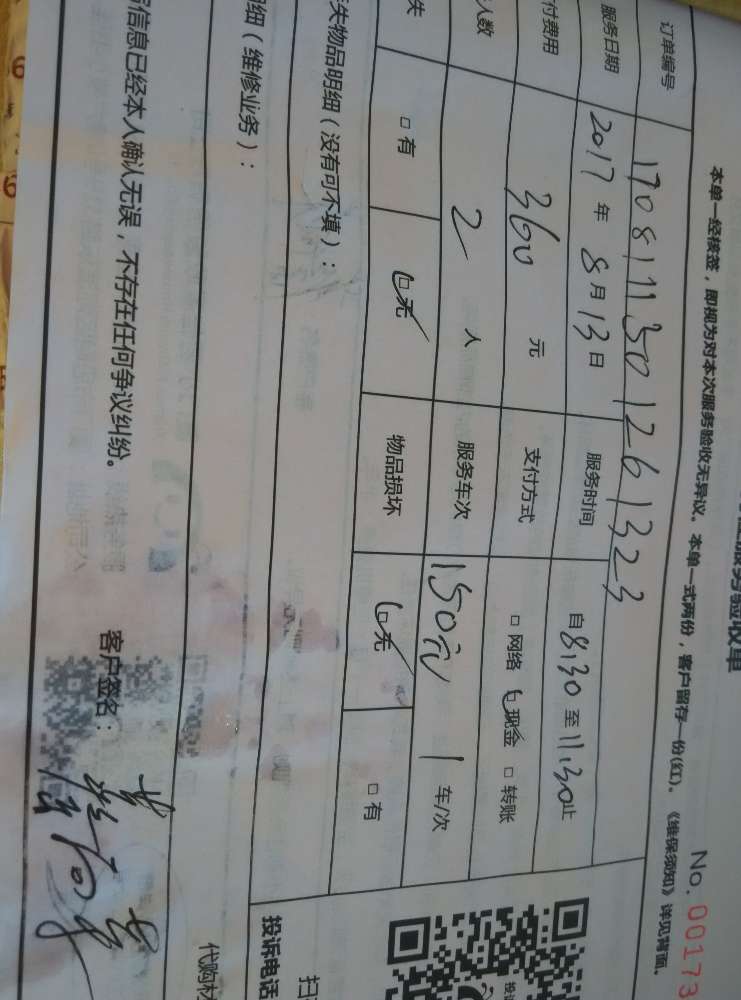 服务验收单
No. 00173
本单一经核签，即视为对本次服务验收无异议。本单一式两份，客户留存一份(红)。《维保须知》详见背面。
订单编号 1708111301261323
服务日期 2017年8月13日 服务时间 自8:30至11:30止
付费用 360元 支付方式 □网络 ☑现金 □转账
人数 2人 服务车次 150元 1车/次
失 □有 ☑无 物品损坏 ☑无 □有
失物品明细（没有可不填）：
细（维修业务）：
扫
投诉电话
代购材
信息已经本人确认无误，不存在任何争议纠纷。 客户签名：